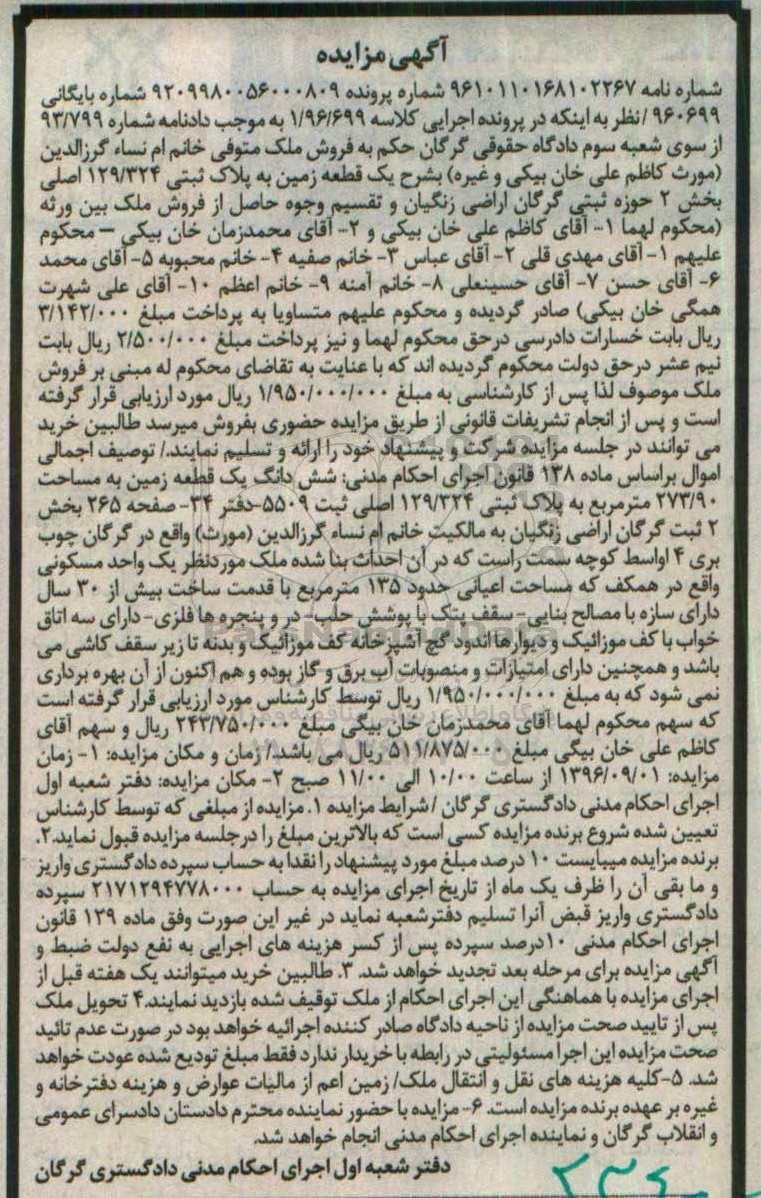 آگهی مزایده
شماره نامه ۹۶۱۰۱۱۰۱۶۸۱۰۲۲۶۷ شماره پرونده ۹۲۰۹۹۸۰۰۵۶۰۰۰۸۰۹ شماره بایگانی
۹۶۰۶۹۹ / نظر به اینکه در پرونده اجرایی کلاسه ۱/۹۶/۶۹۹ به موجب دادنامه شماره ۹۳/۷۹۹
از سوی شعبه سوم دادگاه حقوقی گرگان حکم به فروش ملک متوفی خانم ام نساء گرزالدین
(مورث کاظم علی خان بیکی و غیره) بشرح یک قطعه زمین به پلاک ثبتی ۱۲۹/۳۲۴ اصلی
بخش ۲ حوزه ثبتی گرگان اراضی زنگیان و تقسیم وجوه حاصل از فروش ملک بین ورثه
(محکوم لهما ۱- آقای کاظم علی خان بیکی و ۲- آقای محمدزمان خان بیکی – محکوم
علیهم ۱- آقای مهدی قلی ۲- آقای عباس ۳- خانم صفیه ۴- خانم محبوبه ۵- آقای محمد
۶- آقای حسن ۷- آقای حسینعلی ۸- خانم آمنه ۹- خانم اعظم ۱۰- آقای علی شهرت
همگی خان بیکی) صادر گردیده و محکوم علیهم متساویا به پرداخت مبلغ ۳/۱۴۲/۰۰۰
ریال بابت خسارات دادرسی درحق محکوم لهما و نیز پرداخت مبلغ ۲/۵۰۰/۰۰۰ ریال بابت
نیم عشر درحق دولت محکوم گردیده اند که با عنایت به تقاضای محکوم له مبنی بر فروش
ملک موصوف لذا پس از کارشناسی به مبلغ ۱/۹۵۰/۰۰۰/۰۰۰ ریال مورد ارزیابی قرار گرفته
است و پس از انجام تشریفات قانونی از طریق مزایده حضوری بفروش میرسد طالبین خرید
می توانند در جلسه مزایده شرکت و پیشنهاد خود را ارائه و تسلیم نمایند./ توصیف اجمالی
اموال براساس ماده ۱۳۸ قانون اجرای احکام مدنی: شش دانگ یک قطعه زمین به مساحت
۲۷۳/۹۰ مترمربع به پلاک ثبتی ۱۲۹/۳۲۴ اصلی ثبت ۵۵۰۹-دفتر ۳۴- صفحه ۲۶۵ بخش
۲ ثبت گرگان اراضی زنگیان به مالکیت خانم ام نساء گرزالدین (مورث) واقع در گرگان چوب
بری ۴ اواسط کوچه سمت راست که در آن احداث بنا شده ملک موردنظر یک واحد مسکونی
واقع در همکف که مساحت اعیانی حدود ۱۳۵ مترمربع با قدمت ساخت بیش از ۳۰ سال
دارای سازه با مصالح بنایی- سقف پتک با پوشش حلب- در و پنجره ها فلزی- دارای سه اتاق
خواب با کف موزائیک و دیوارها اندود گچ آشپزخانه کف موزائیک و بدنه تا زیر سقف کاشی می
باشد و همچنین دارای امتیازات و منصوبات آب برق و گاز بوده و هم اکنون از آن بهره برداری
نمی شود که به مبلغ ۱/۹۵۰/۰۰۰/۰۰۰ ریال توسط کارشناس مورد ارزیابی قرار گرفته است
که سهم محکوم لهما آقای محمدزمان خان بیگی مبلغ ۲۴۳/۷۵۰/۰۰۰ ریال و سهم آقای
کاظم علی خان بیگی مبلغ ۵۱۱/۸۷۵/۰۰۰ ریال می باشد./ زمان و مکان مزایده: ۱- زمان
مزایده: ۱۳۹۶/۰۹/۰۱ از ساعت ۱۰/۰۰ الی ۱۱/۰۰ صبح ۲- مکان مزایده: دفتر شعبه اول
اجرای احکام مدنی دادگستری گرگان / شرایط مزایده ۱. مزایده از مبلغی که توسط کارشناس
تعیین شده شروع برنده مزایده کسی است که بالاترین مبلغ را درجلسه مزایده قبول نماید.۲.
برنده مزایده میبایست ۱۰ درصد مبلغ مورد پیشنهاد را نقدا به حساب سپرده دادگستری واریز
و ما بقی آن را ظرف یک ماه از تاریخ اجرای مزایده به حساب ۲۱۷۱۲۹۴۷۷۸۰۰۰ سپرده
دادگستری واریز قبض آنرا تسلیم دفترشعبه نماید در غیر این صورت وفق ماده ۱۲۹ قانون
اجرای احکام مدنی ۱۰درصد سپرده پس از کسر هزینه های اجرایی به نفع دولت ضبط و
آگهی مزایده برای مرحله بعد تجدید خواهد شد. ۳. طالبین خرید میتوانند یک هفته قبل از
اجرای مزایده با هماهنگی این اجرای احکام از ملک توقیف شده بازدید نمایند.۴ تحویل ملک
پس از تایید صحت مزایده از ناحیه دادگاه صادر کننده اجرائیه خواهد بود در صورت عدم تائید
صحت مزایده این اجرا مسئولیتی در رابطه با خریدار ندارد فقط مبلغ تودیع شده عودت خواهد
شد. ۵-کلیه هزینه های نقل و انتقال ملک/ زمین اعم از مالیات عوارض و هزینه دفترخانه و
غیره بر عهده برنده مزایده است. ۶- مزایده با حضور نماینده محترم دادستان دادسرای عمومی
و انقلاب گرگان و نماینده اجرای احکام مدنی انجام خواهد شد.
دفتر شعبه اول اجرای احکام مدنی دادگستری گرگان